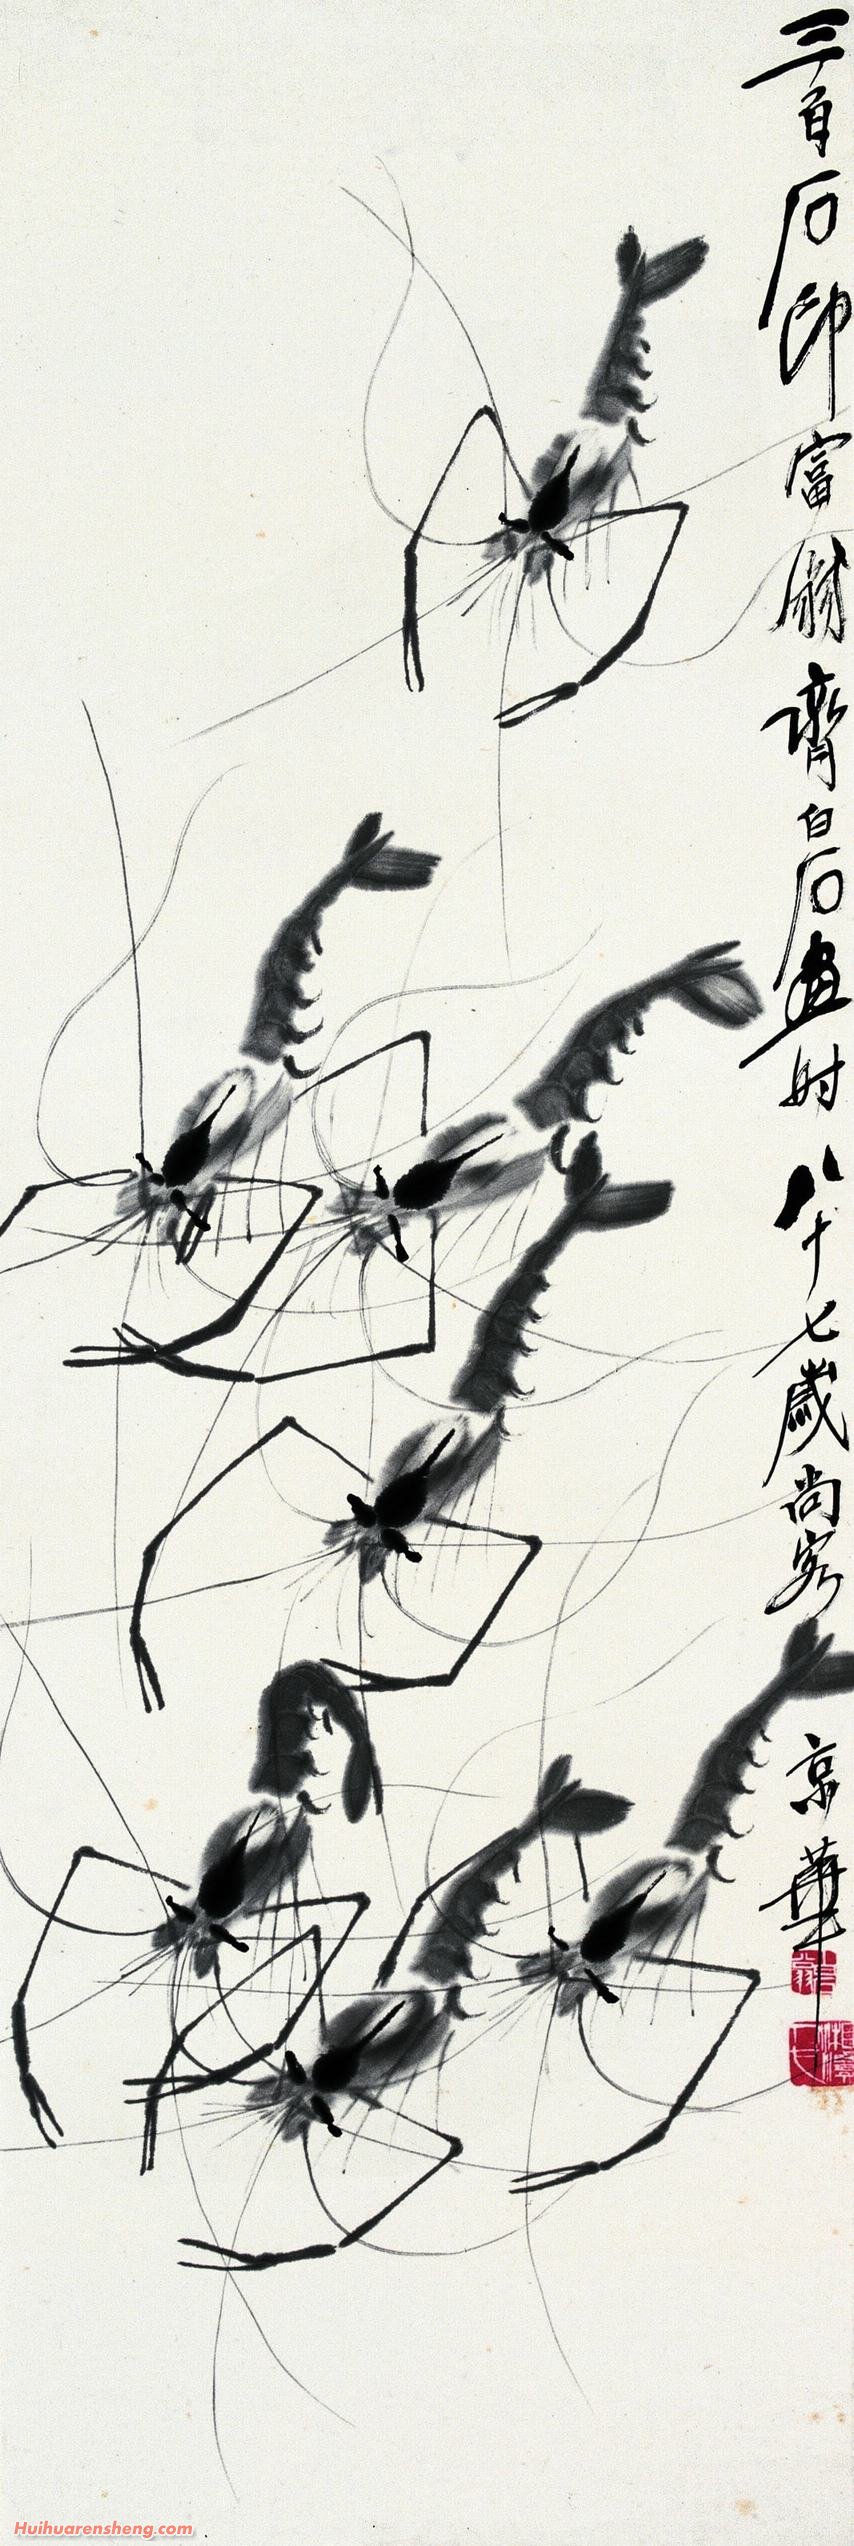 三百石印富翁齊白石畫时八十七歲尚客京華
Huihuarensheng.com